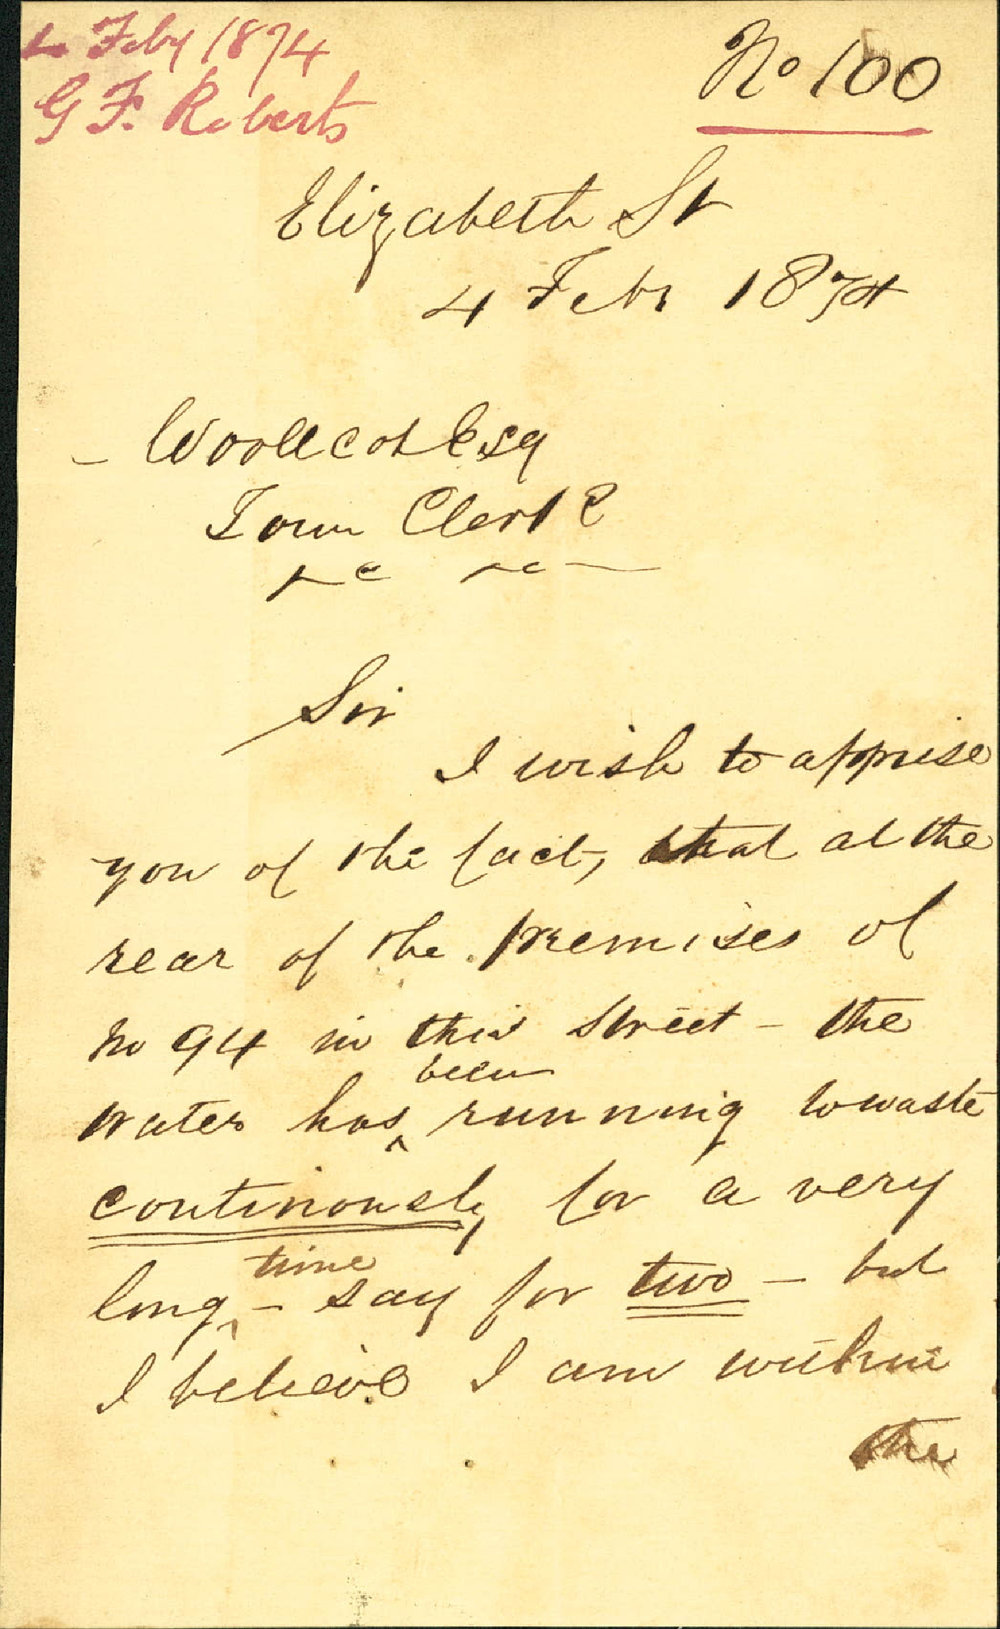 4 Feby 1874
G F. Roberts
No 100
Elizabeth St
4 Feby 1874
– Woollcot Esq
Town Clerk
&c &c –
Sir
I wish to apprise
you of the fact, that at the
rear of the premises of
No 94 in this Street – the
been
water has ^ running to waste
continously for a very
time
long ^ – say for two – but
I believe I am within
the